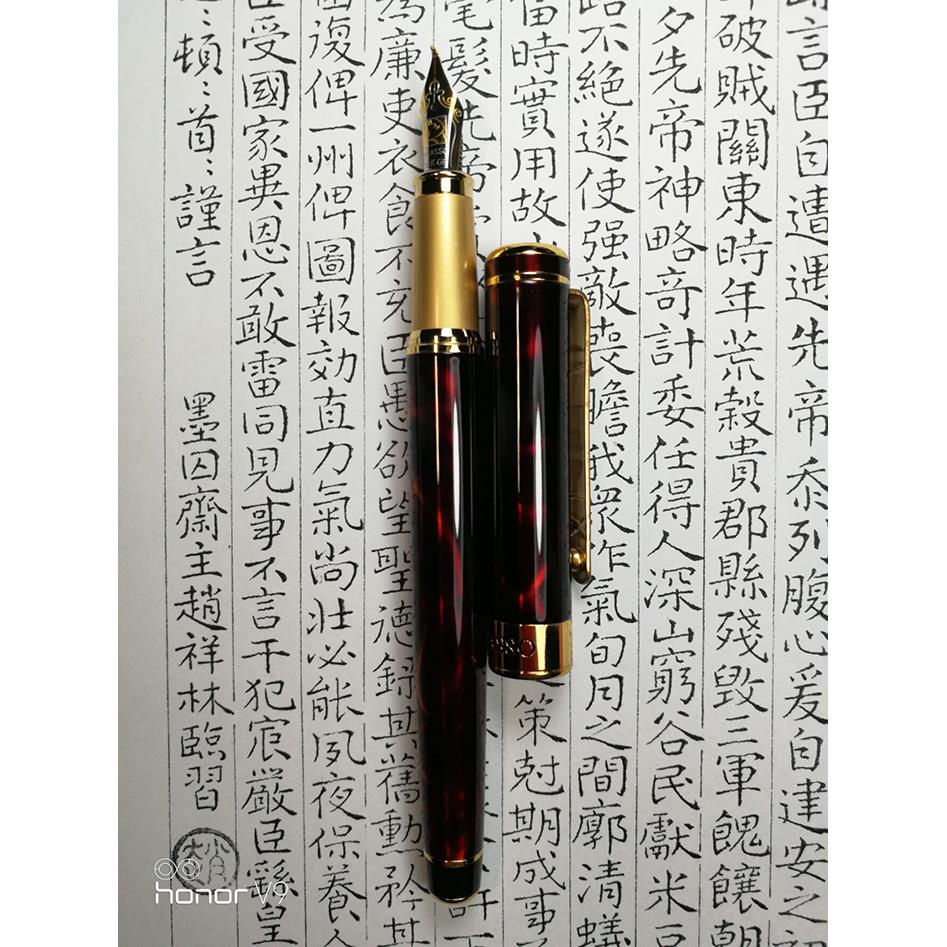 言臣自遭遇先帝忝列腹心爰自建安之
破賊關東時年荒穀貴郡縣殘毀三軍餽饟
夕先帝神略奇計委任得人深山窮谷民獻米豆
路不絕遂使强敵喪膽我衆作氣旬月之間廓清蟻
當時實用故 策尅期成事
毫髮先帝
為廉吏衣食不充臣愚欲望聖德錄其舊勳矜其
復俾一州俾圖報効直力氣尚壯必能夙夜保養人
臣受國家異恩不敢雷同見事不言干犯宸嚴臣繇皇
頓〻首〻謹言 墨囚齋主趙祥林臨習
honor V9